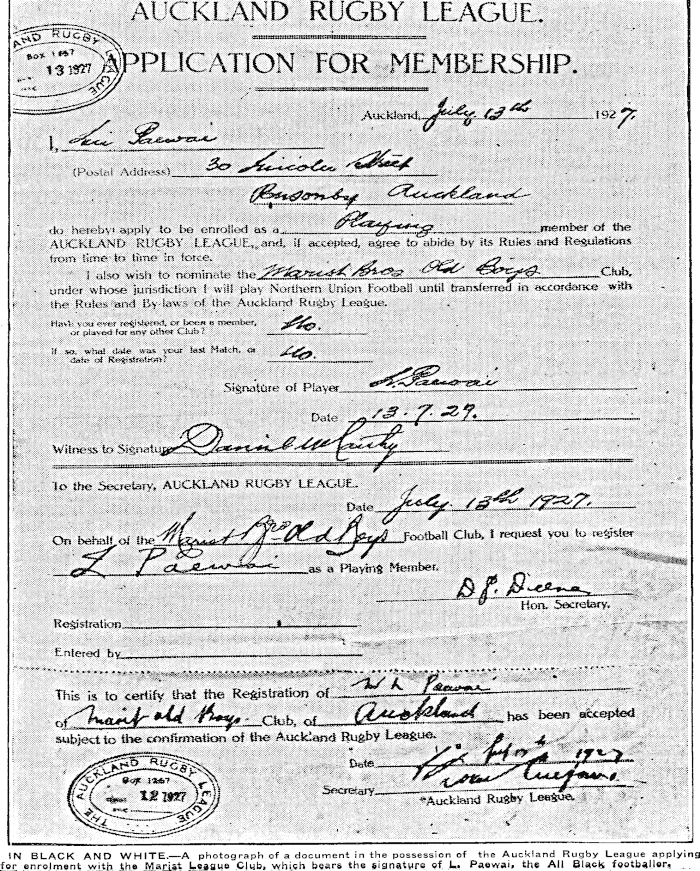 AUCKLAND RUGBY LEAGUE.
AND RUGBY LEAGUE
BOX 1267
13 1927
APPLICATION FOR MEMBERSHIP.
Auckland, July 13th 1927.
I, Lui Paewai
(Postal Address) 30 Lincoln Street
Ponsonby Auckland
do hereby apply to be enrolled as a Playing member of the
AUCKLAND RUGBY LEAGUE, and, if accepted, agree to abide by its Rules and Regulations
from time to time in force.
I also wish to nominate the Marist Bros Old Boys Club,
under whose jurisdiction I will play Northern Union Football until transferred in accordance with
the Rules and By-laws of the Auckland Rugby League.
Have you ever registered, or been a member,
or played for any other Club? No.
If so, what date was your last Match, or
date of Registration? No.
Signature of Player L Paewai
Date 13.7.27.
Witness to Signature Daniel McCarthy
To the Secretary, AUCKLAND RUGBY LEAGUE.
Date July. 13th 1927.
On behalf of the Marist Bros Old Boys Football Club, I request you to register
L Paewai as a Playing Member.
Hon. Secretary.
Registration
Entered by
This is to certify that the Registration of Paewai
of Marist old Boys Club, of Auckland has been accepted
subject to the confirmation of the Auckland Rugby League.
Date 1927
Secretary
Auckland Rugby League.
THE AUCKLAND RUGBY LEAGUE
BOX 1267
12 1927
IN BLACK AND WHITE.—A photograph of a document in the possession of the Auckland Rugby League applying
for enrolment with the Marist League Club, which bears the signature of L. Paewai, the All Black footballer.